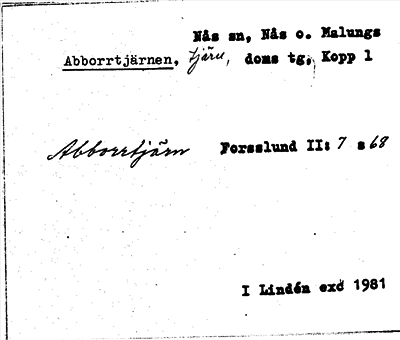 Nås sn, Nås o. Malungs
Abborrtjärnen, tjärn, doms tg, Kopp l
Abborrtjärn Forsslund II: 7 s 68
I Lindén exc 1981